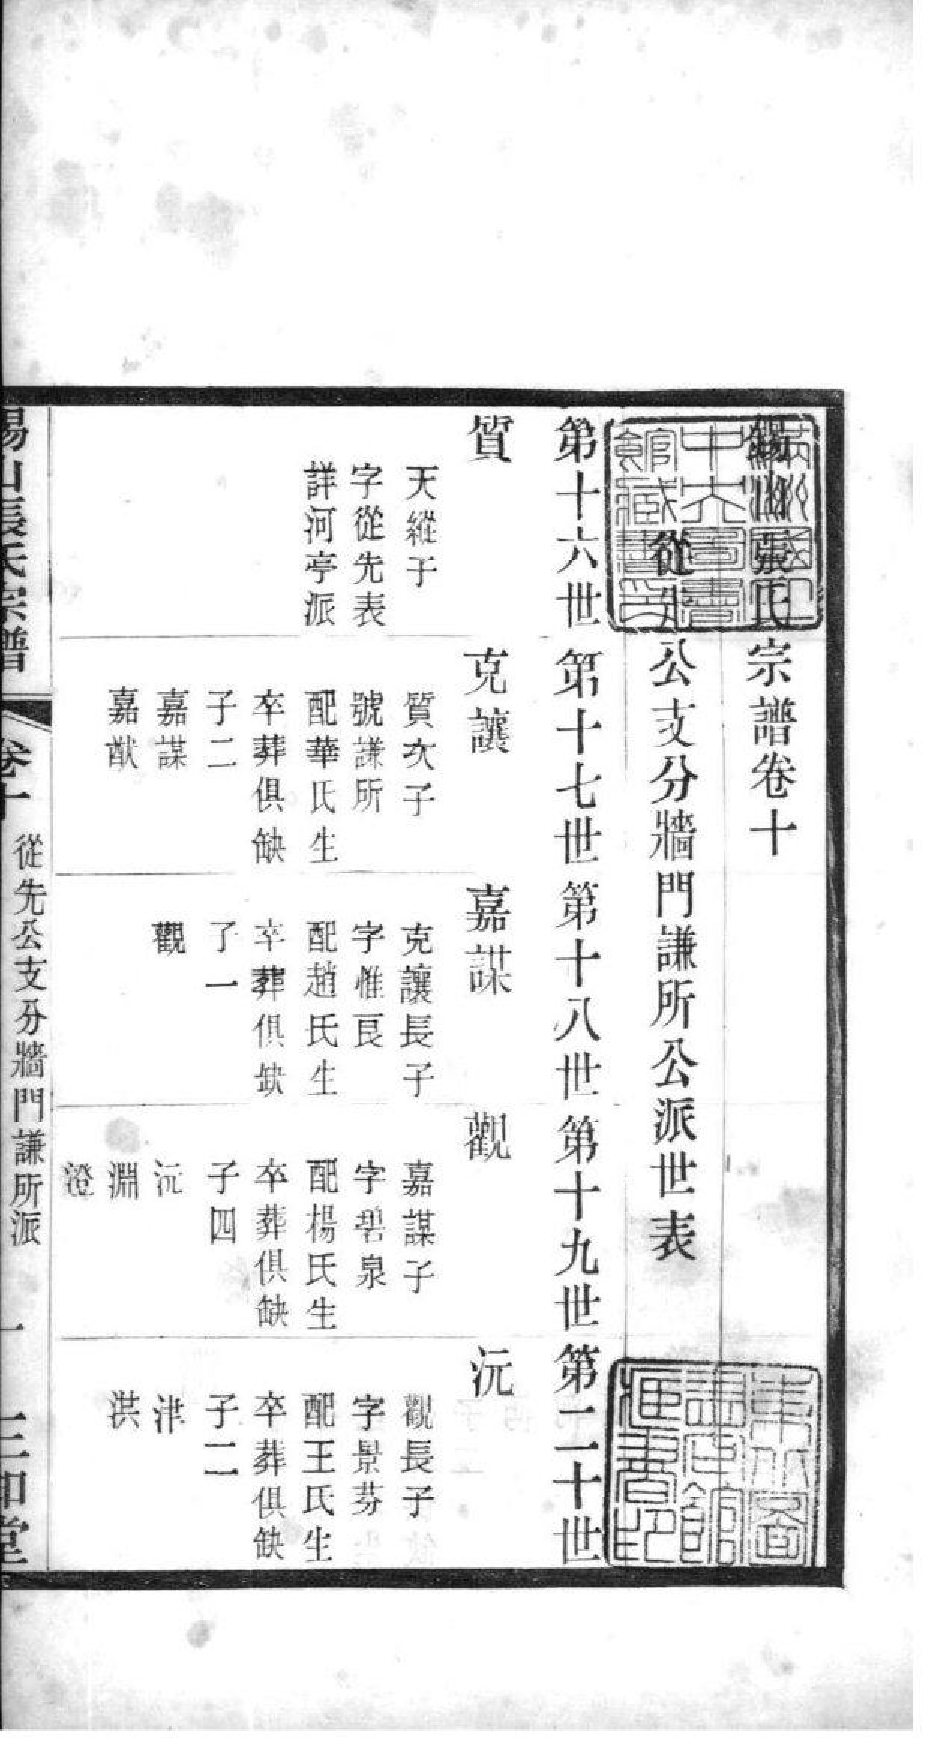 錫山張氏宗譜卷十
從先公支分牆門謙所公派世表
第十六世
第十七世
第十八世
第十九世
第二十世
質
天縱子
字從先表
詳河亭派
克讓
質次子
號謙所
配華氏生
卒葬俱缺
子二
嘉謀
嘉猷
嘉謀
克讓長子
字惟良
配趙氏生
卒葬俱缺
子一
觀
觀
嘉謀子
字碧泉
配楊氏生
卒葬俱缺
子四
沅
淵
澄
沅
觀長子
字景芬
配王氏生
卒葬俱缺
子二
津
洪
錫山張氏宗譜
卷十
從先公支分牆門謙所派
一
三和堂